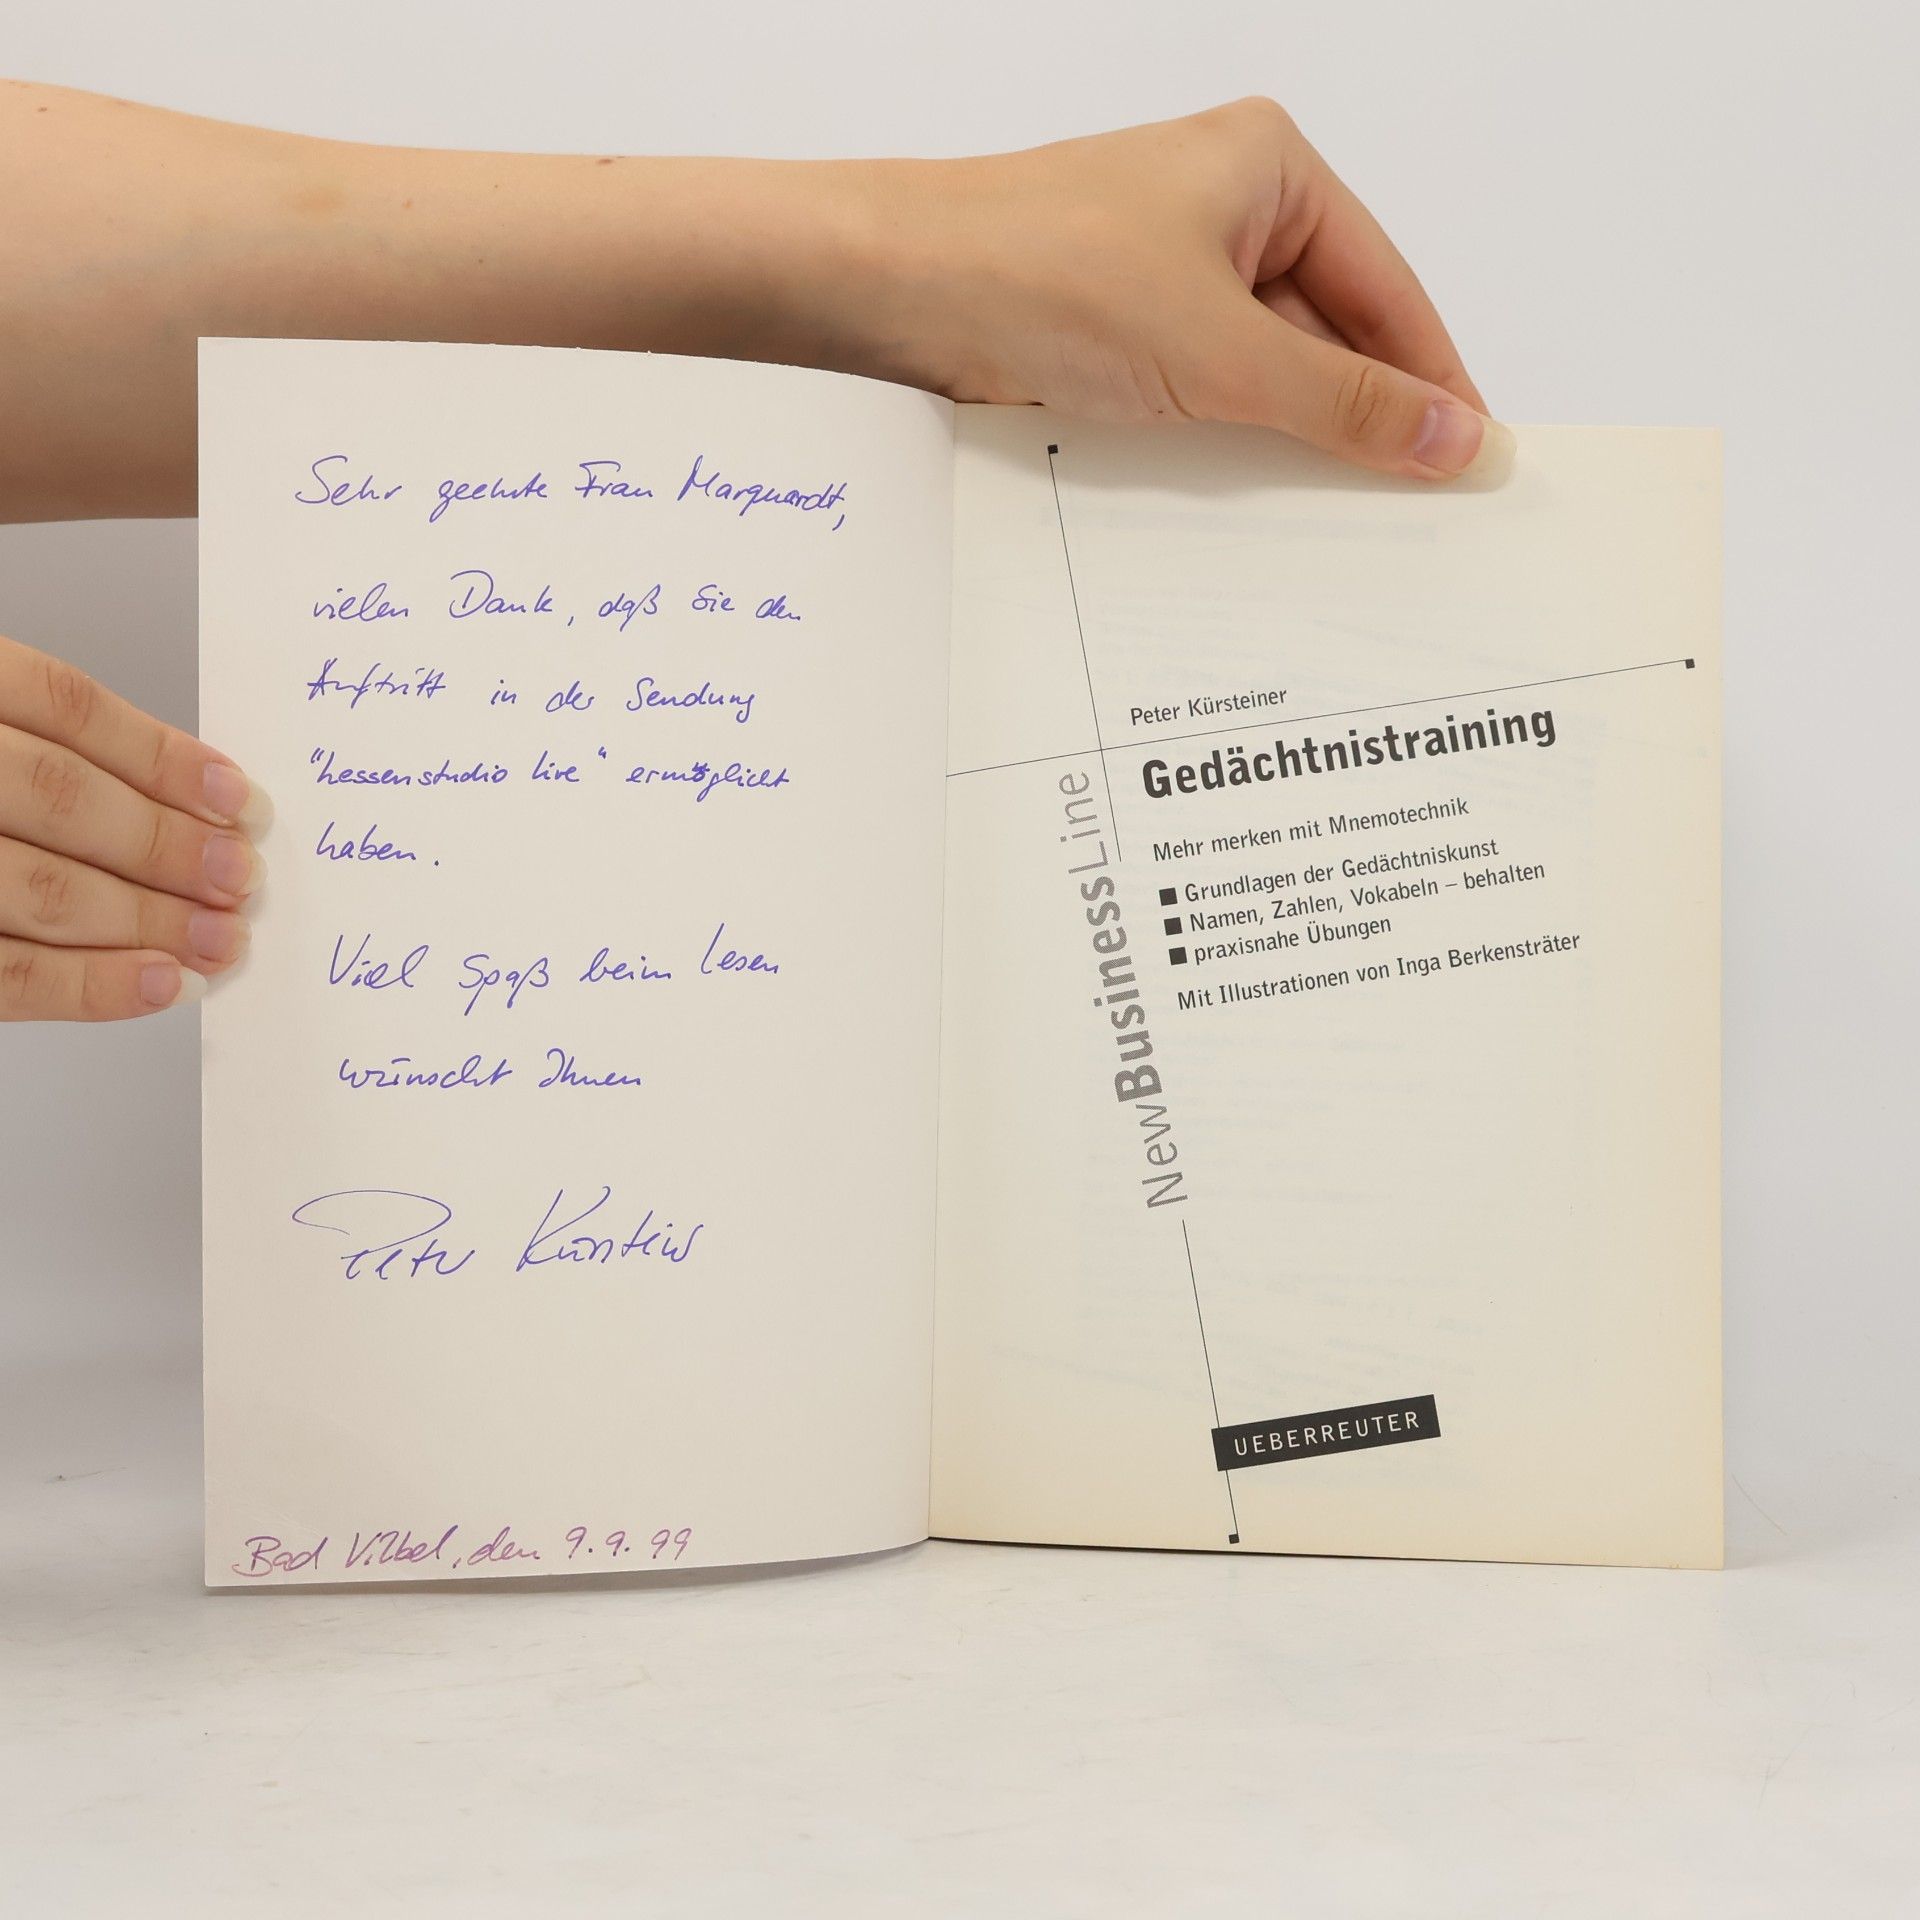 Sehr geehrte Frau Marquardt,
vielen Dank, daß Sie den
Auftritt in der Sendung
"hessenstudio live" ermöglicht
haben.
Viel Spaß beim Lesen
wünscht Ihnen
Peter Kürsteiner
Bad Vilbel, den 9.9.99
Peter Kürsteiner
Gedächtnistraining
Mehr merken mit Mnemotechnik
■ Grundlagen der Gedächtniskunst
■ Namen, Zahlen, Vokabeln – behalten
■ praxisnahe Übungen
Mit Illustrationen von Inga Berkensträter
NewBusinessLine
UEBERREUTER